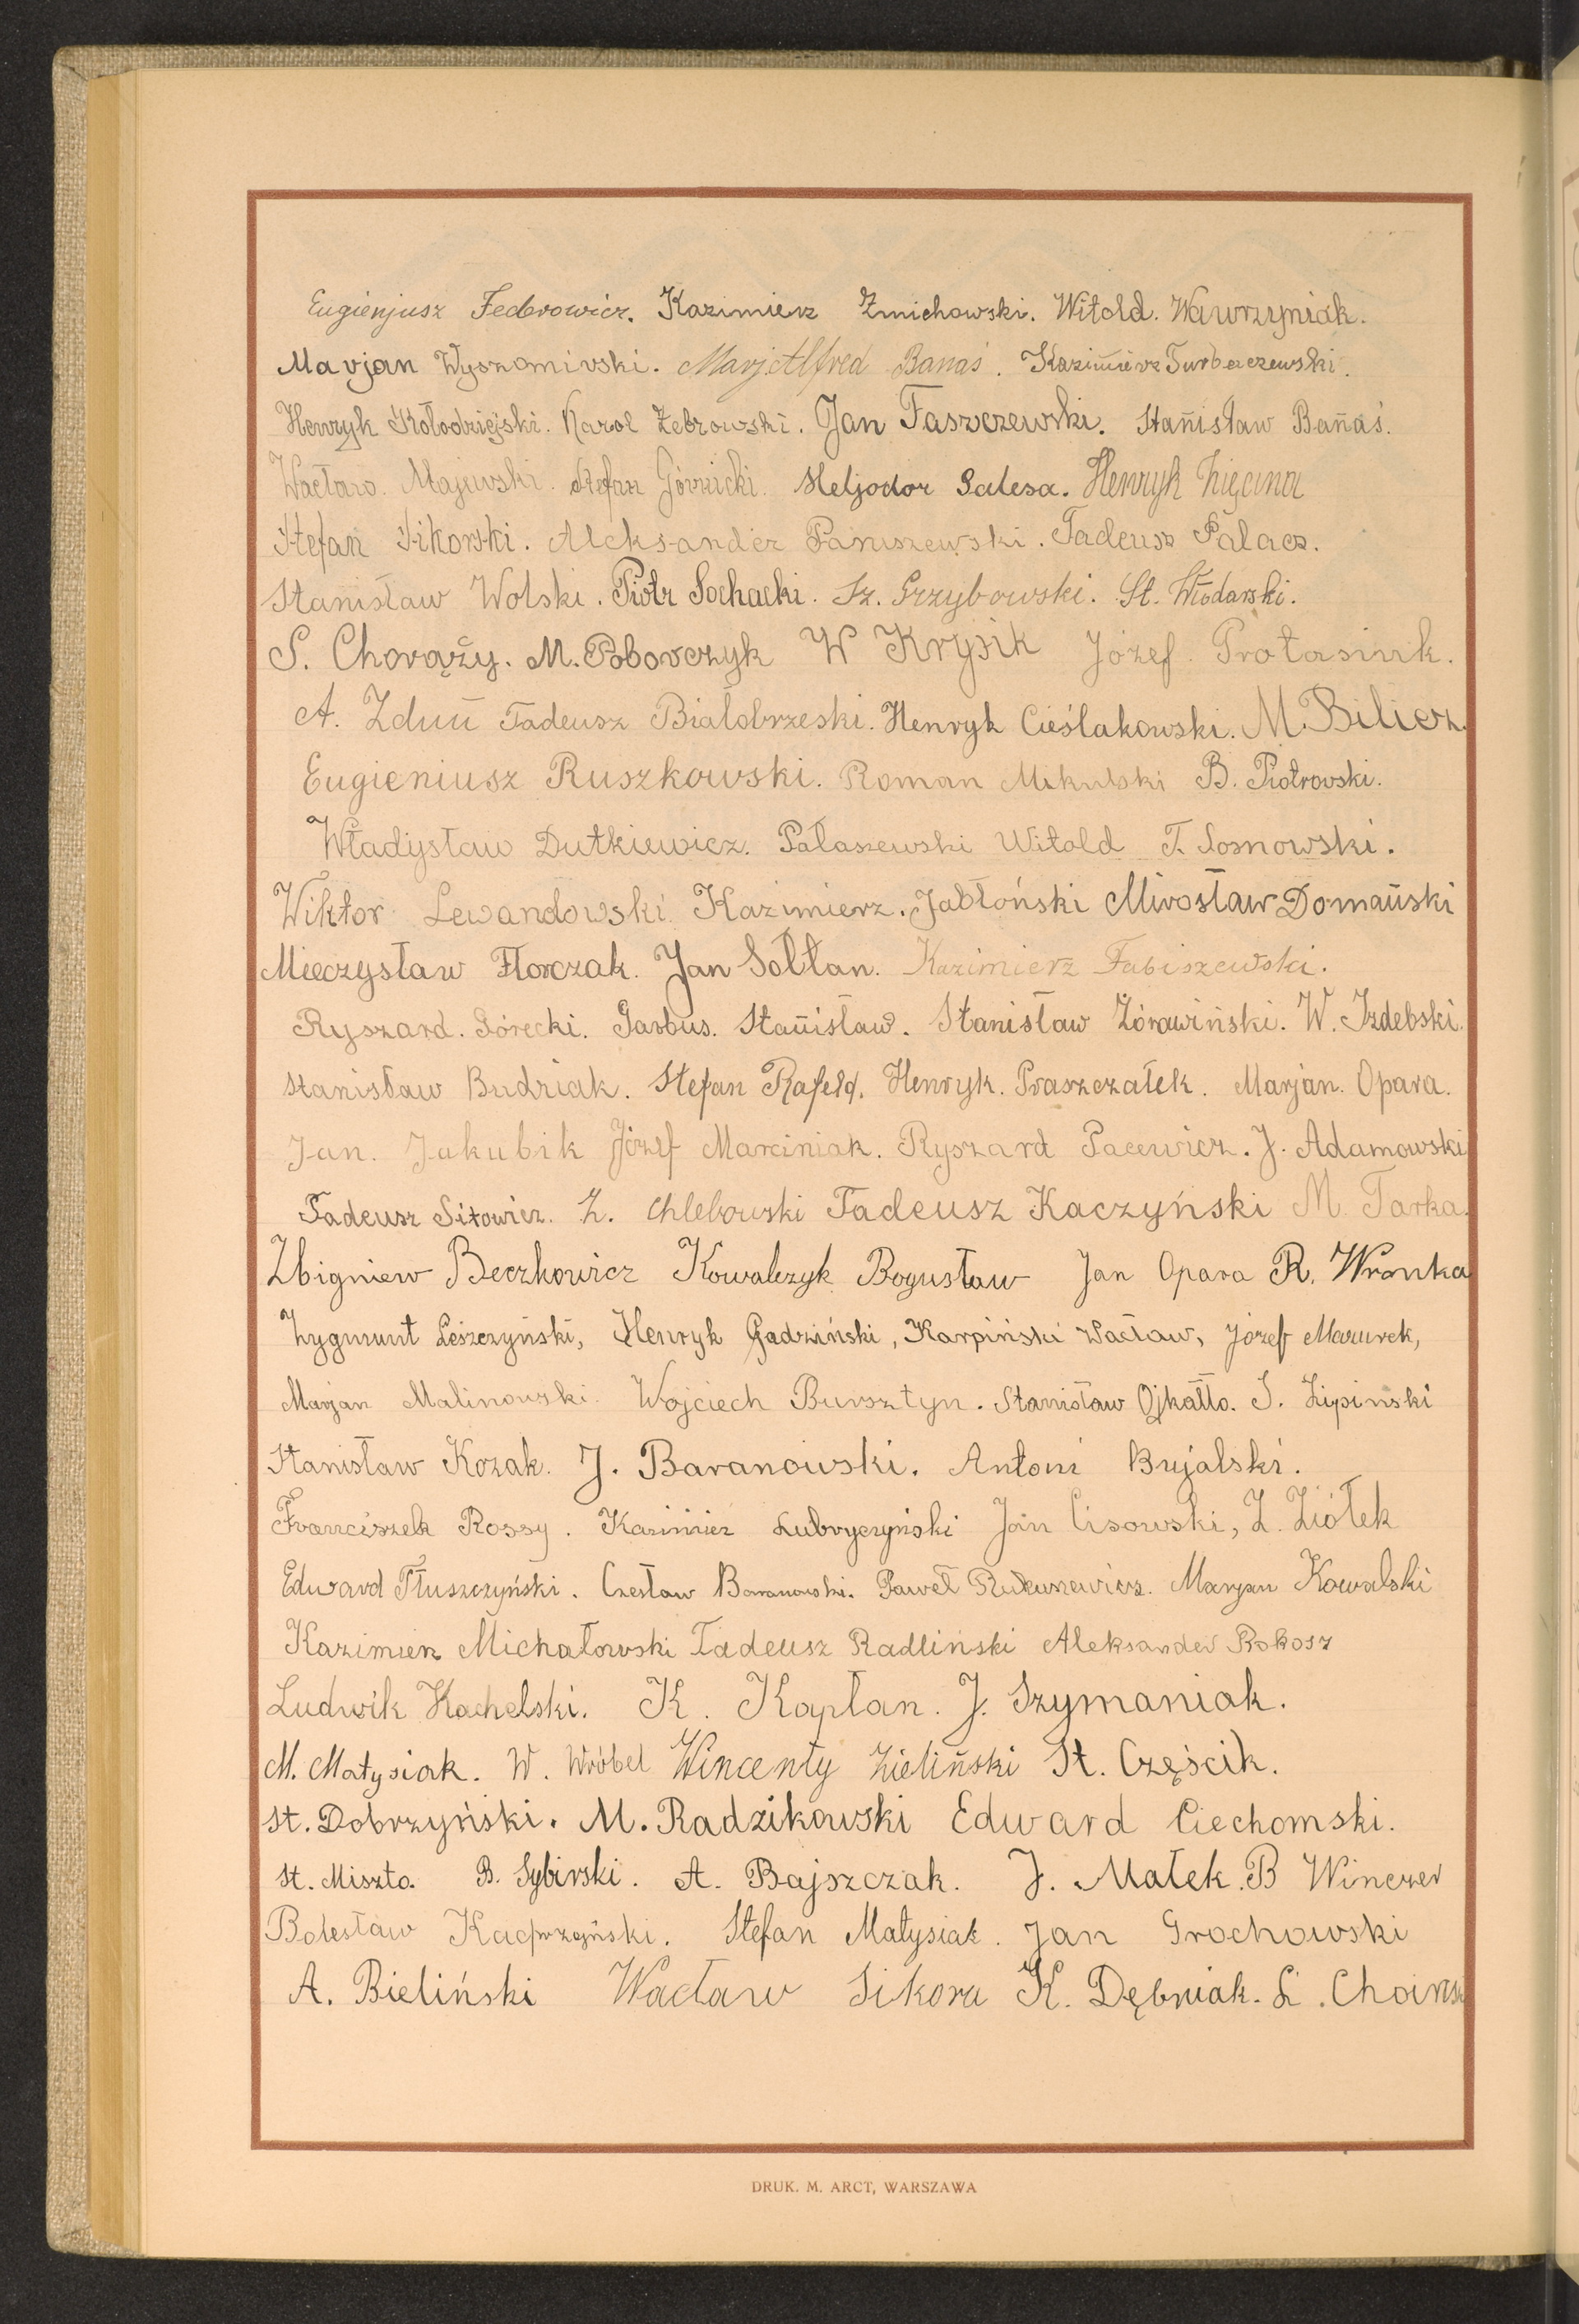 Eugienjusz Federowicz. Kazimierz Żmichowski. Witold. Wawrzyniak.
Marjan Wyszomirski. Marj. Alfred Banaś. Kazimierz Turbaczewski.
Henryk Kołodziejski. Karol Żebrowski. Jan Taszczewski. Stanisław Banaś.
Wacław. Majewski. Stefan Górnicki. Heljodor Salesa. Henryk
Stefan Sikorski. Aleksander Paruszewski. Tadeusz Palacz.
Stanisław Wolski. Piotr Sochacki. Sz. Grzybowski. St. Włodarski.
S. Chorąży. M. Poborczyk W Krysik Józef. Protasiuk.
A. Zduń Tadeusz Białobrzeski. Henryk Cieślakowski. M. Bilicz.
Eugieniusz Ruszkowski. Roman Mikulski B. Piotrowski.
Władysław Dutkiewicz. Pałaszewski Witold T. Sosnowski.
Wiktor Lewandowski Kazimierz. Jabłoński Mirosław Domański
Mieczysław Florczak. Jan Sołtan. Kazimierz Fabiszewski.
Ryszard. Górecki. Garbus. Stanisław. Stanisław Żórawiński. W. Izdebski.
Stanisław Budziak. Stefan Rafeld. Henryk. Praszczałek. Marjan. Opara.
Jan. Jakubik Józef Marciniak. Ryszard Pacewicz. J. Adamowski
Tadeusz Sitowicz. Z. Chlebowski Tadeusz Kaczyński M. Tarka.
Zbigniew Beczkowicz Kowalczyk Bogusław Jan Opara R. Wronka
Zygmunt Leszczyński, Henryk Gadziński, Karpiński Wacław, Józef Mazurek,
Marjan Malinowski. Wojciech Bursztyn. Stanisław Ojkałło. S. Lipinski
Stanisław Kozak. J. Baranowski. Antoni Bujalski.
Franciszek Rossy. Kazimierz Lubryczyński Jan Cisowski, Z. Ziółek
Edward Tłuszczyński. Czesław Baranowski. Paweł Marjan Kowalski
Kazimierz Michałowski Tadeusz Radliński Aleksander Rokosz
Ludwik Kachelski. K. Kapłan. J. Szymaniak.
M. Matysiak. W. Wróbel Wincenty Zieliński St. Częścik.
St. Dobrzyński. M. Radzikowski Edward Ciechomski.
St. Miszto. B. Sybirski. A. Bajszczak. J. Małek. B Winczer
Bolesław Kacprzyński. Stefan Matysiak. Jan Grochowski
A. Bieliński Wacław Sikora K. Dębniak. L.
DRUK. M. ARCT, WARSZAWA